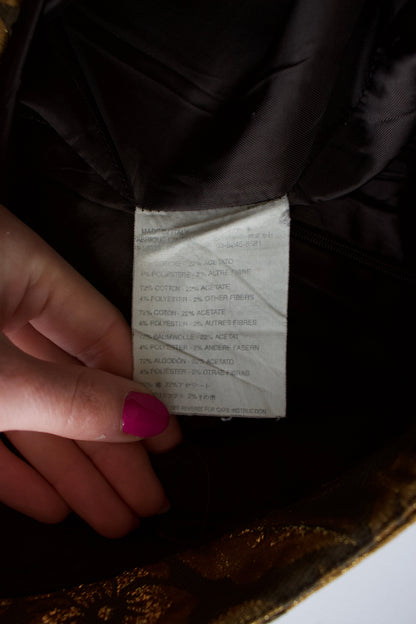 MADE IN ITALY
03-5245-8581
COTONE - 22% ACETATO
4% POLIESTERE - 2% ALTRE FIBRE
72% COTTON - 22% ACETATE
4% POLYESTER - 2% OTHER FIBERS
72% COTON - 22% ACETATE
4% POLYESTER - 2% AUTRES FIBRES
72% BAUMWOLLE - 22% ACETAT
4% POLYESTER - 2% ANDERE FASERN
72% ALGODON - 22% ACETATO
4% POLYESTER - 2% OTRAS FIBRAS
綿 22% アセテート
2% その他
REVERSE FOR CARE INSTRUCTION